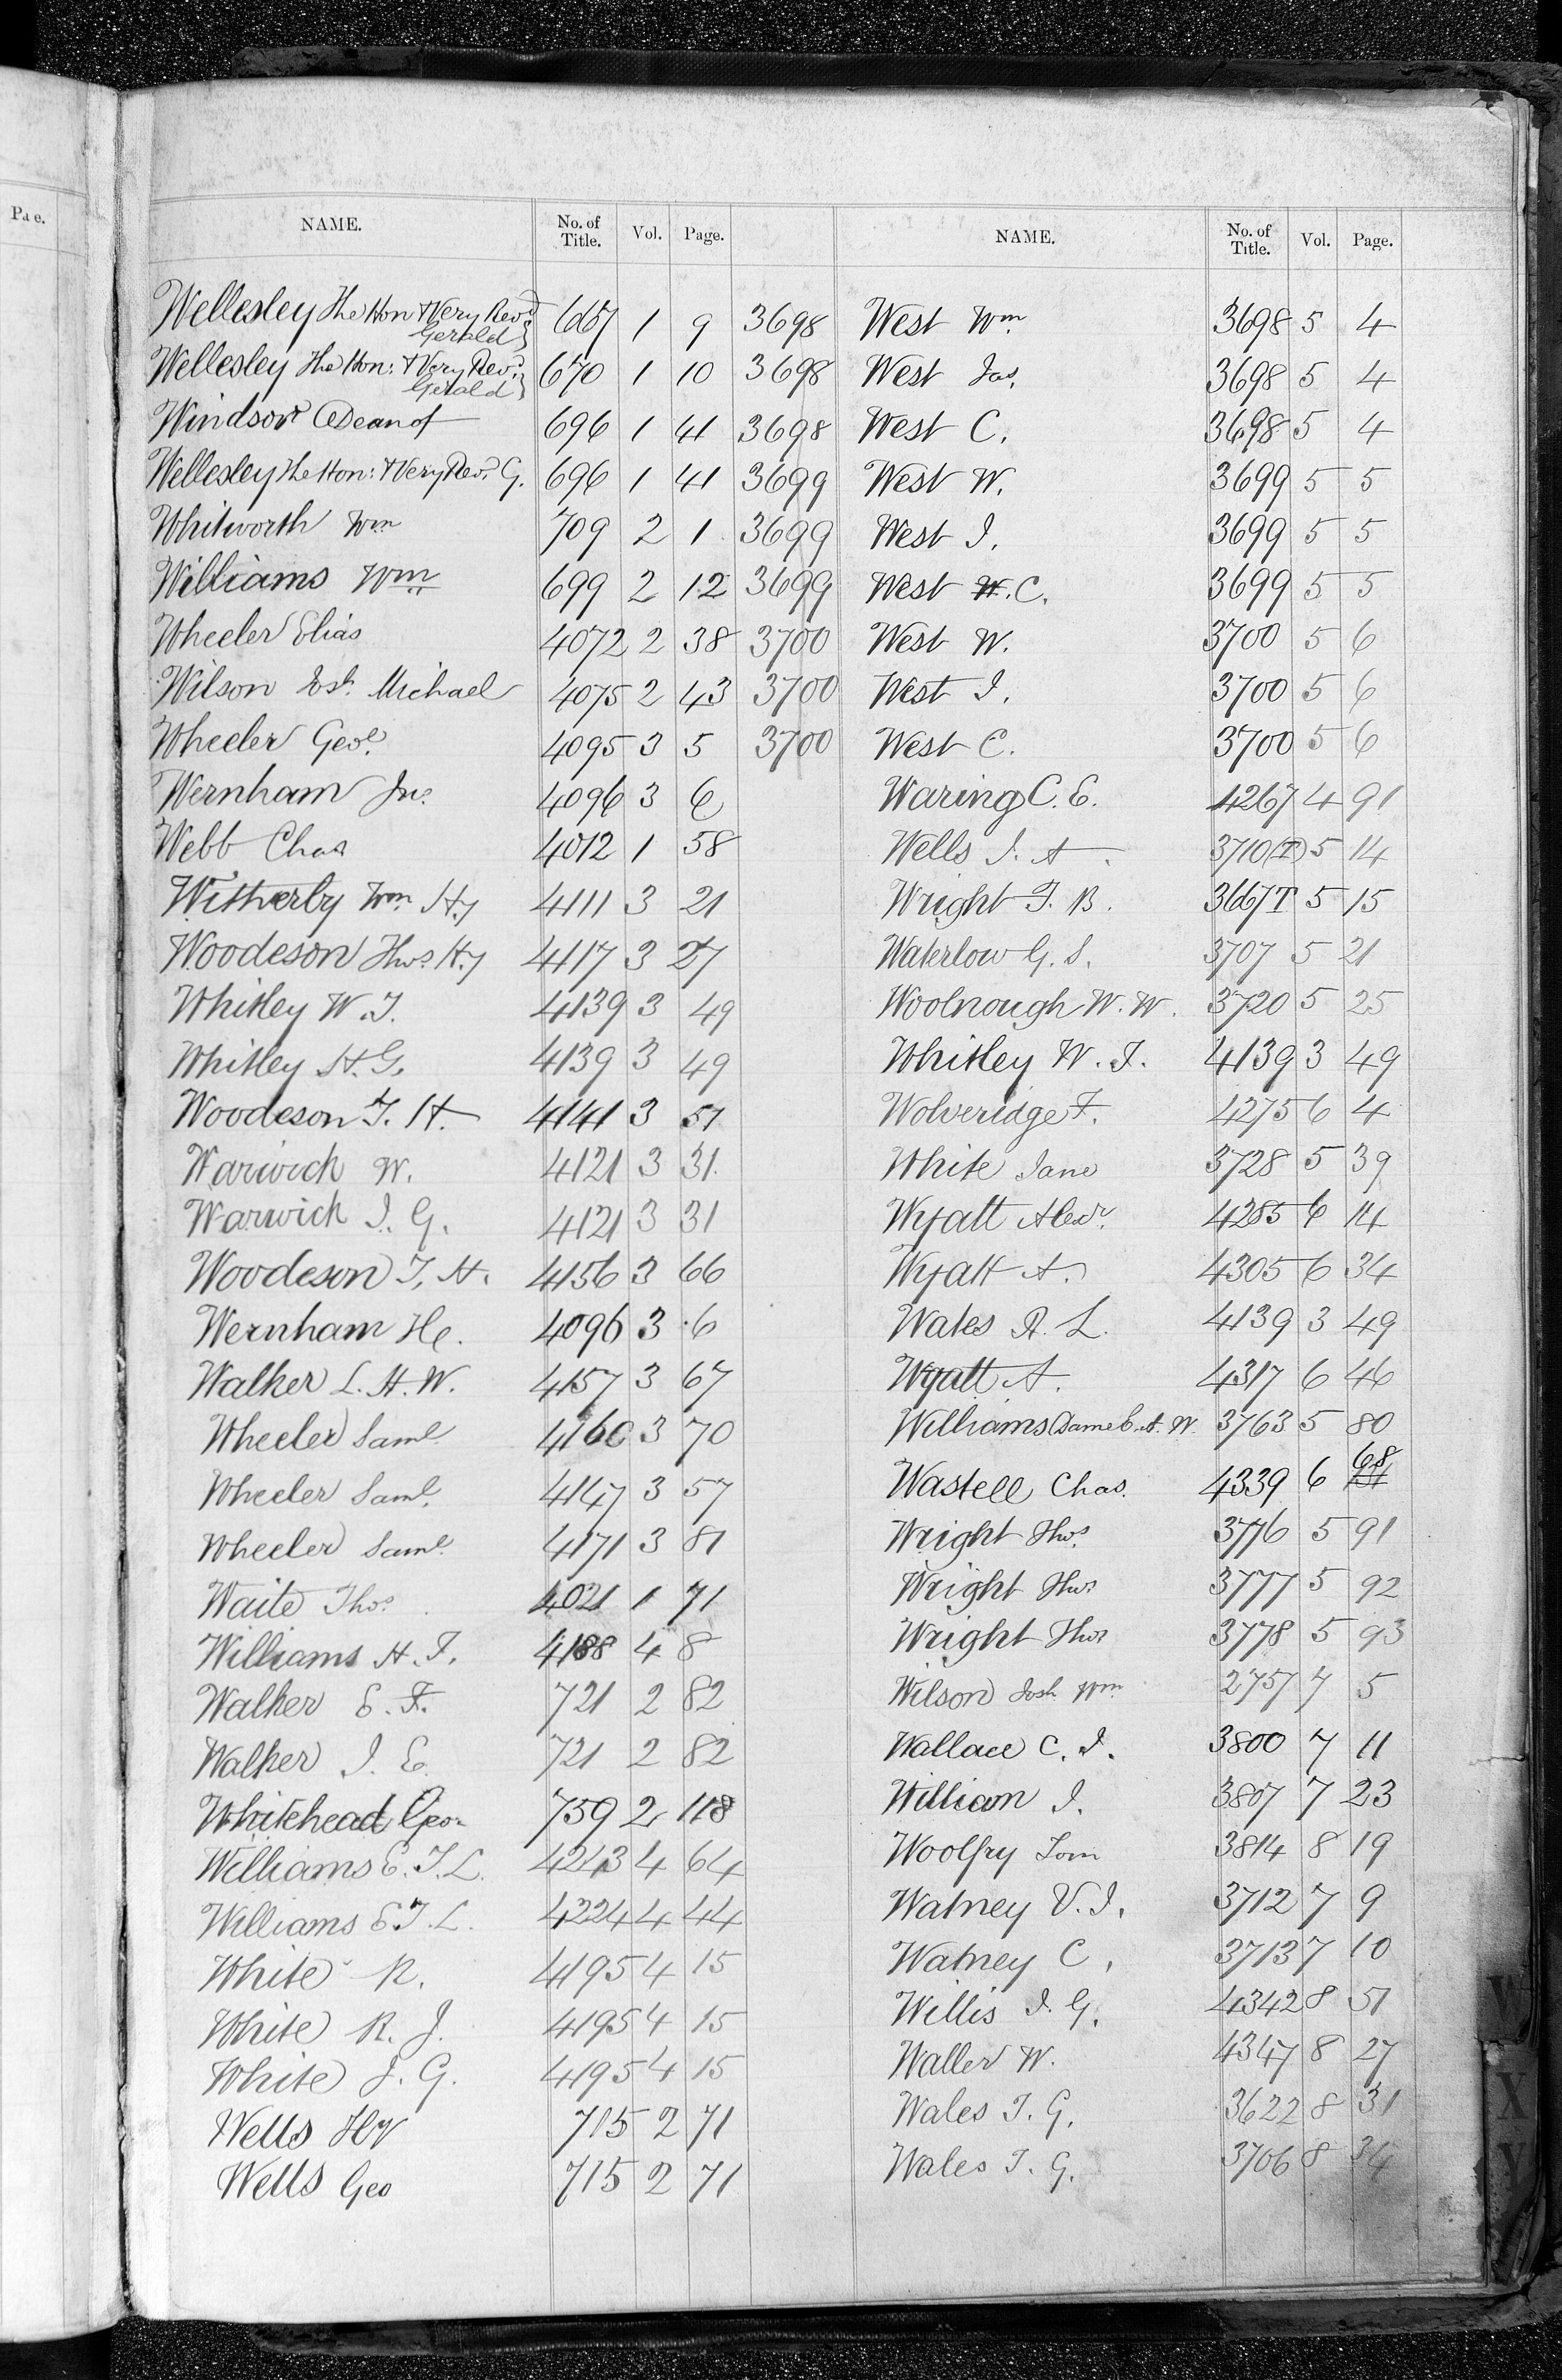 Pa e.
NAME. No. of Title. Vol. Page.
Wellesley The Hon & Very Revd Gerald } 667 1 9 3698
Wellesley The Hon: & Very Revd: Gerald } 670 1 10 3698
Windsor Dean of 696 1 41 3698
Wellesley The Hon: & Very Revd G. 696 1 41 3699
Whitworth Wm 709 2 1 3699
Williams Wm 699 2 12 3699
Wheeler Elias 4072 2 38 3700
Wilson Josh. Michael 4075 2 43 3700
Wheeler Geo. 4095 3 5 3700
Wernham Jno. 4096 3 6
Webb Chas 4012 1 58
Witherby Wm Hy 4111 3 21
Woodeson Thos. Hy 4117 3 27
Whitley W. J. 4139 3 49
Whitley H. G. 4139 3 49
Woodeson T. H. 4141 3 51
Warwick W. 4121 3 31
Warwick J. G. 4121 3 31
Woodeson T. H. 4156 3 66
Wernham He. 4096 3 6
Walker L. H. W. 4157 3 67
Wheeler Saml. 4160 3 70
Wheeler Saml. 4147 3 57
Wheeler Saml. 4171 3 81
Waite Thos. 4021 1 71
Williams H. F. 4188 4 8
Walker E. F. 721 2 82
Walker J. E. 721 2 82
Whitehead Geo. 759 2 118
Williams E. T. L. 4243 4 64
Williams E T. L. 4224 4 44
White R. 4195 4 15
White R. J. 4195 4 15
White J. G. 4195 4 15
Wells Hy 715 2 71
Wells Geo 715 2 71
NAME. No. of Title. Vol. Page.
West Wm 3698 5 4
West Jas. 3698 5 4
West C. 3698 5 4
West W. 3699 5 5
West J. 3699 5 5
West W. C. 3699 5 5
West W. 3700 5 6
West J. 3700 5 6
West C. 3700 5 6
Waring C. E. 4267 4 91
Wells J. A. 3710(T) 5 14
Wright T. B. 3667T 5 15
Waterlow G. S. 3707 5 21
Woolnough W. W. 3720 5 25
Whitley W. J. 4139 3 49
Wolveridge F. 4275 6 4
White Jane 3728 5 39
Wyatt Alexr. 4285 6 14
Wyatt A. 4305 6 34
Wates R. L. 4139 3 49
Wyatt A. 4317 6 46
Williams Dame C. A. W. 3763 5 80
Wastell Chas. 4339 6 68
Wright Thos. 3776 5 91
Wright Thos 3777 5 92
Wright Thos 3778 5 93
Wilson Josh Wm 2757 7 5
Wallace C. J. 3800 7 11
William J. 3807 7 23
Woolfry Tom 3814 8 19
Watney V. J. 3712 7 9
Watney C. 3713 7 10
Willis J. G. 4342 8 51
Waller W. 4347 8 27
Wales T. G. 3622 8 31
Wales T. G. 3706 8 34
W
X
Y